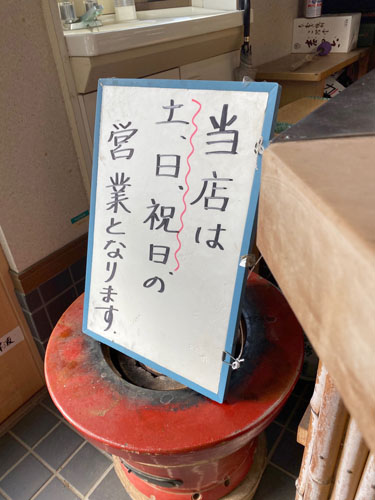 当店は
土、日、祝日、の
営業となります.